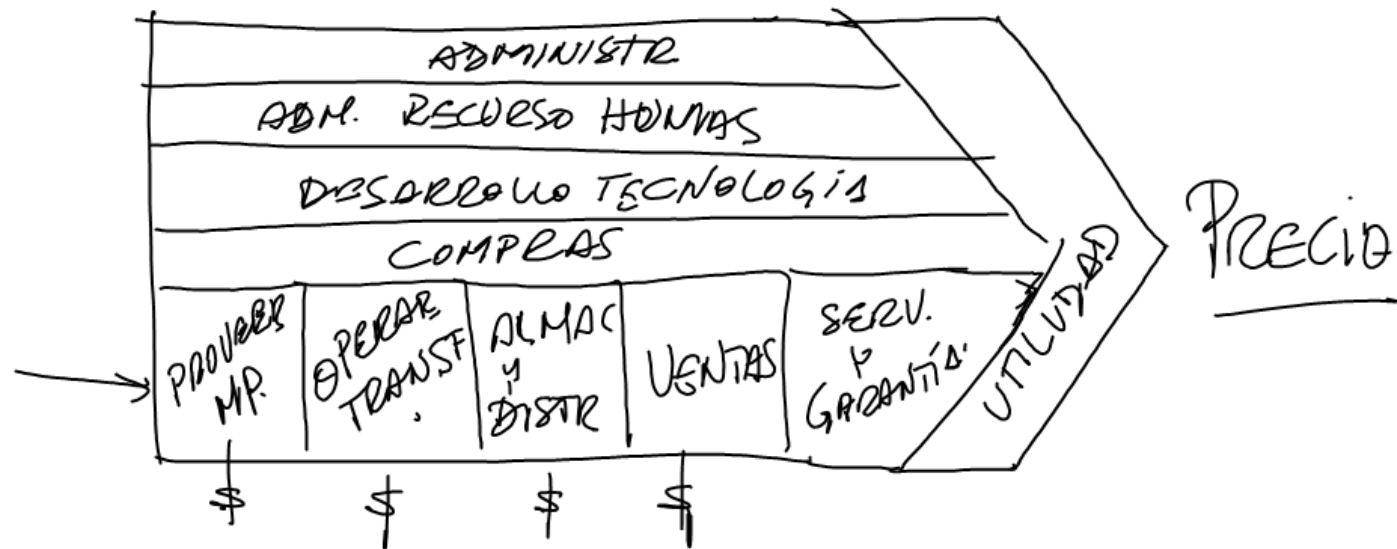 ADMINISTR
ADM. RECURSO HUMAS
DESARROLLO TECNOLOGÍA
COMPRAS
PROVEER
MP.
OPERAR
TRANSF.
ALMAC
y
DISTR
VENTAS
SERV.
y
GARANTÍA.
UTILIDAD
PRECIO
$
$
$
$